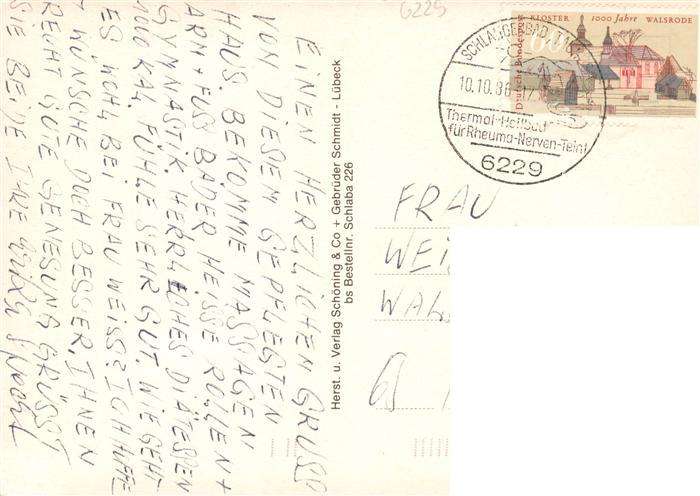 6229
KLOSTER 1000 Jahre WALSRODE
Deutsche Bundespost
60
SCHLANGENBAD
10.10.86
Thermal-Heilbad
für Rheuma-Nerven-Teint
6229
EINEN HERZLICHEN GRUSS
VON DIESEM GEPFLEGTEN
HAUS. BEKOMME MASSAGEN
ARM + FUSS BÄDER HEISSE ROLLEN +
GYMNASTIK. HERRLICHES DIÄTESSEN
1000 KAL. FÜHLE SEHR GUT. WIE GEHT
ES BEI FRAU WEISS? ICH HOFFE
BESSER. IHNEN
WÜNSCHE DOCH
RECHT GUTE GENESUNG GRÜSST
SIE BEIDE IHRE
Herst. u. Verlag Schöning & Co + Gebrüder Schmidt - Lübeck
bs Bestellnr. Schlaba 226
FRAU
WEI
WAL
65